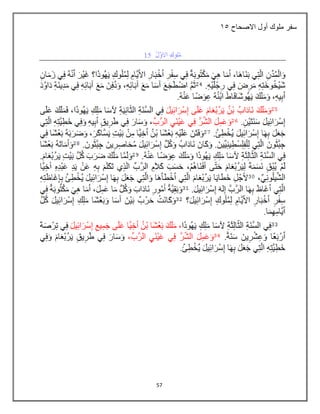 سفر ملوك أول الاصحاح ١٥
مُلُوكَ الأَوَّلُ 15
وَالْمُدُنِ الَّتِي بَنَاهَا، أَمَا هِيَ مَكْتُوبَةٌ فِي سِفْرِ أَخْبَارِ الأَيَّامِ لِمُلُوكِ يَهُوذَا؟ غَيْرَ أَنَّهُ فِي زَمَانِ
شَيْخُوخَتِهِ مَرِضَ فِي رِجْلَيْهِ. ثُمَّ اضْطَجَعَ آسَا مَعَ آبَائِهِ، وَدُفِنَ مَعَ آبَائِهِ فِي مَدِينَةِ دَاوُدَ
أَبِيهِ، وَمَلَكَ يَهُوشَافَاطُ ابْنُهُ عِوَضًا عَنْهُ.
وَمَلَكَ نَادَابُ بْنُ يَرُبْعَامَ عَلَى إِسْرَائِيلَ فِي السَّنَةِ الثَّانِيَةِ لآسَا مَلِكِ يَهُوذَا، فَمَلَكَ عَلَى
إِسْرَائِيلَ سَنَتَيْنِ. وَعَمِلَ الشَّرَّ فِي عَيْنَيِ الرَّبِّ، وَسَارَ فِي طَرِيقِ أَبِيهِ وَفِي خَطِيَّتِهِ الَّتِي
جَعَلَ بِهَا إِسْرَائِيلَ يُخْطِئُ. وَفَتَنَ عَلَيْهِ بَعْشَا بْنُ أَخِيَّا مِنْ بَيْتِ يَسَّاكَرَ، وَضَرَبَهُ بَعْشَا فِي
جِبَّثُونَ الَّتِي لِلْفِلِسْطِينِيِّينَ. وَكَانَ نَادَابُ وَكُلُّ إِسْرَائِيلَ مُحَاصِرِينَ جِبَّثُونَ. وَأَمَاتَهُ بَعْشَا
فِي السَّنَةِ الثَّالِثَةِ لآسَا مَلِكِ يَهُوذَا وَمَلَكَ عِوَضًا عَنْهُ. وَلَمَّا مَلَكَ ضَرَبَ كُلَّ بَيْتِ يَرُبْعَامَ.
لَمْ يُبْقِ نَسَمَةً لِيَرُبْعَامَ حَتَّى أَفْنَاهُمْ، حَسَبَ كَلاَمِ الرَّبِّ الَّذِي تَكَلَّمَ بِهِ عَنْ يَدِ عَبْدِهِ أَخِيَّا
الشِّيلُونِيِّ، لأَجْلِ خَطَايَا يَرُبْعَامَ الَّتِي أَخْطَأَهَا وَالَّتِي جَعَلَ بِهَا إِسْرَائِيلَ يُخْطِئُ بِإِغَاظَتِهِ
الَّتِي أَغَاظَ بِهَا الرَّبَّ إِلهَ إِسْرَائِيلَ. وَبَقِيَّةُ أُمُورِ نَادَابَ وَكُلُّ مَا عَمِلَ، أَمَا هِيَ مَكْتُوبَةٌ فِي
سِفْرِ أَخْبَارِ الأَيَّامِ لِمُلُوكِ إِسْرَائِيلَ؟ وَكَانَتْ حَرْبٌ بَيْنَ آسَا وَبَعْشَا مَلِكِ إِسْرَائِيلَ كُلَّ
أَيَّامِهِمَا.
فِي السَّنَةِ الثَّالِثَةِ لآسَا مَلِكِ يَهُوذَا، مَلَكَ بَعْشَا بْنُ أَخِيَّا عَلَى جَمِيعِ إِسْرَائِيلَ فِي تِرْصَةَ
أَرْبَعًا وَعِشْرِينَ سَنَةً. وَعَمِلَ الشَّرَّ فِي عَيْنَيِ الرَّبِّ، وَسَارَ فِي طَرِيقِ يَرُبْعَامَ وَفِي
خَطِيَّتِهِ الَّتِي جَعَلَ بِهَا إِسْرَائِيلَ يُخْطِئُ.
57